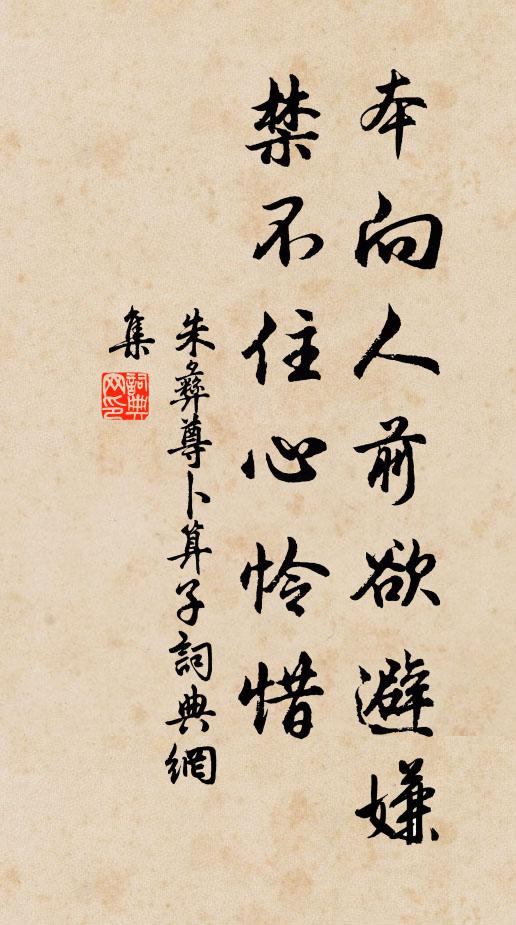 本向人前欲避嫌
禁不住心怜惜
朱彝尊卜算子詞典網
集
詞典网印